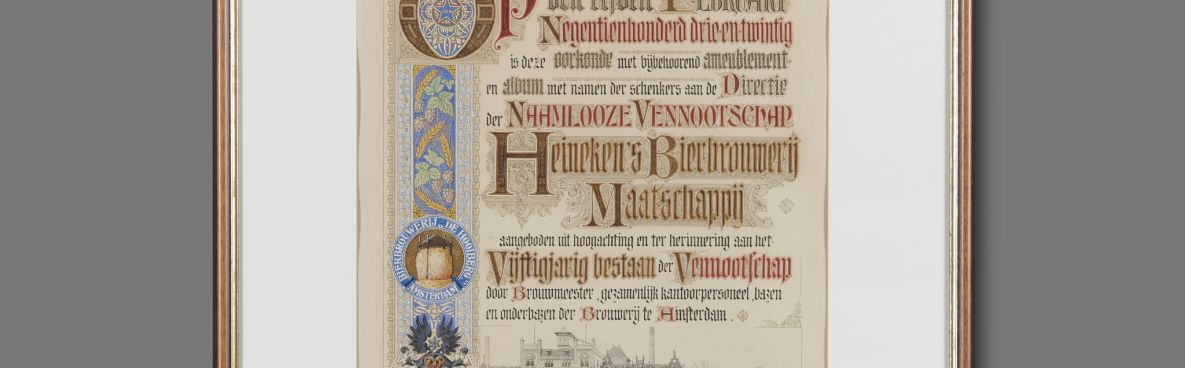 Op den eersten FEBRUARI
Negentienhonderd drie-en-twintig
is deze oorkonde met bijbehoorend ameublement
en album met namen der schenkers aan de Directie
der NAAMLOOZE VENNOOTSCHAP
Heineken's Bierbrouwerij
Maatschappij
aangeboden uit hoogachting en ter herinnering aan het
Vijftigjarig bestaan der Vennootschap
door Brouwmeester, gezamenlijk kantoorpersoneel, bazen
en onderbazen der Brouwerij te Amsterdam.
BIERBROUWERIJ "DE HOOIBERG"
AMSTERDAM